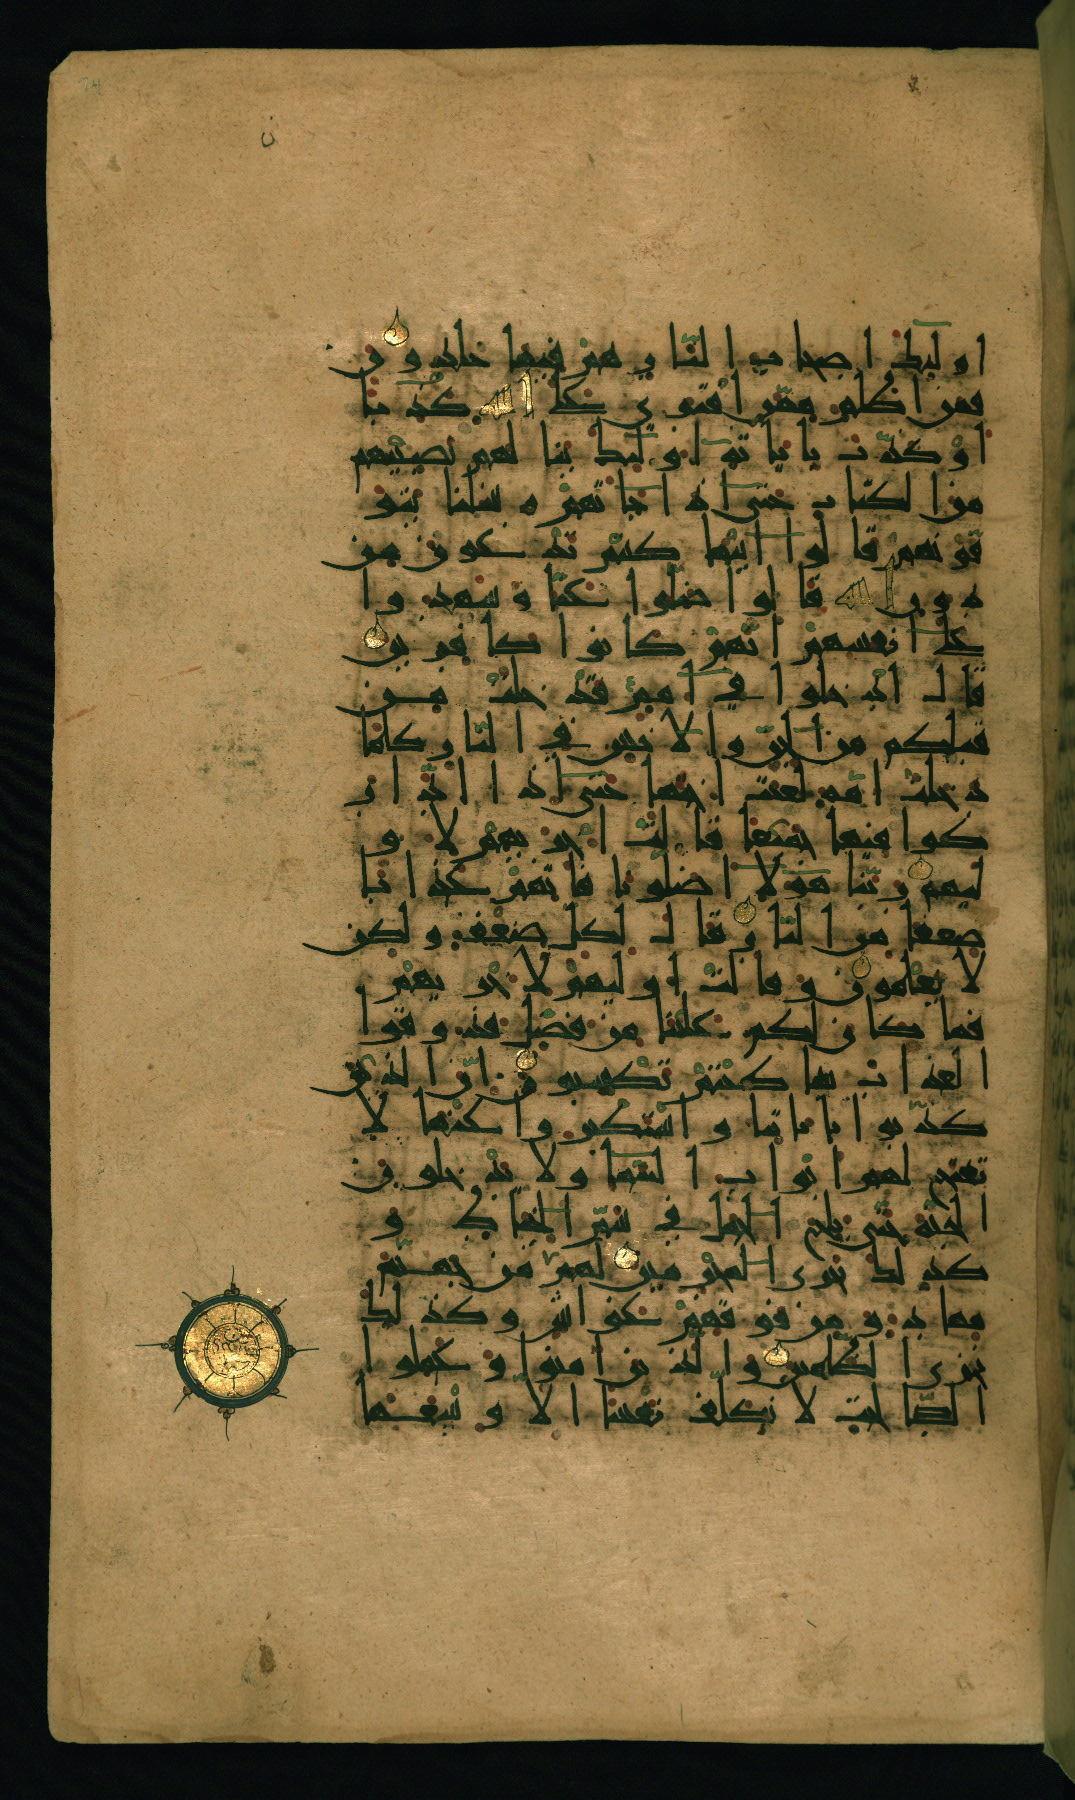 اولئك اصحاب النار هم فيها خالدون
فمن اظلم ممن افترى على الله كذبا
او كذب باياته اولئك ينالهم نصيبهم
من الكتاب حتى اذا جاتهم رسلنا يتو
فونهم قالوا اينما كنتم تدعون من
دون الله قالوا ضلوا عنا وشهدوا
على انفسهم انهم كانوا كافرين
قال ادخلوا في امم قد خلت من
قبلكم من الجن والانس في النار كلما
دخلت امة لعنت اختها حتى اذا ادار
كوا فيها جميعا قالت اخريهم لاو
ليهم ربنا هولا اضلونا فاتهم عذابا
ضعفا من النار قال لكل ضعف ولكن
لا يعلمون وقالت اوليهم لاخريهم
فما كان لكم علينا من فضل فذوقوا
العذاب بما كنتم تكسبون ان الذين
كذبوا باياتنا واستكبروا عنها لا
تفتح لهم ابواب السما ولا يدخلون
الجنة حتى يلج الجمل في سم الخياط و
كذلك نجزي المجرمين لهم من جهنم
مهاد ومن فوقهم غواش وكذلك
نجزي الظالمين والذين امنوا وعملوا
الصالحات لا نكلف نفسا الا وسعها